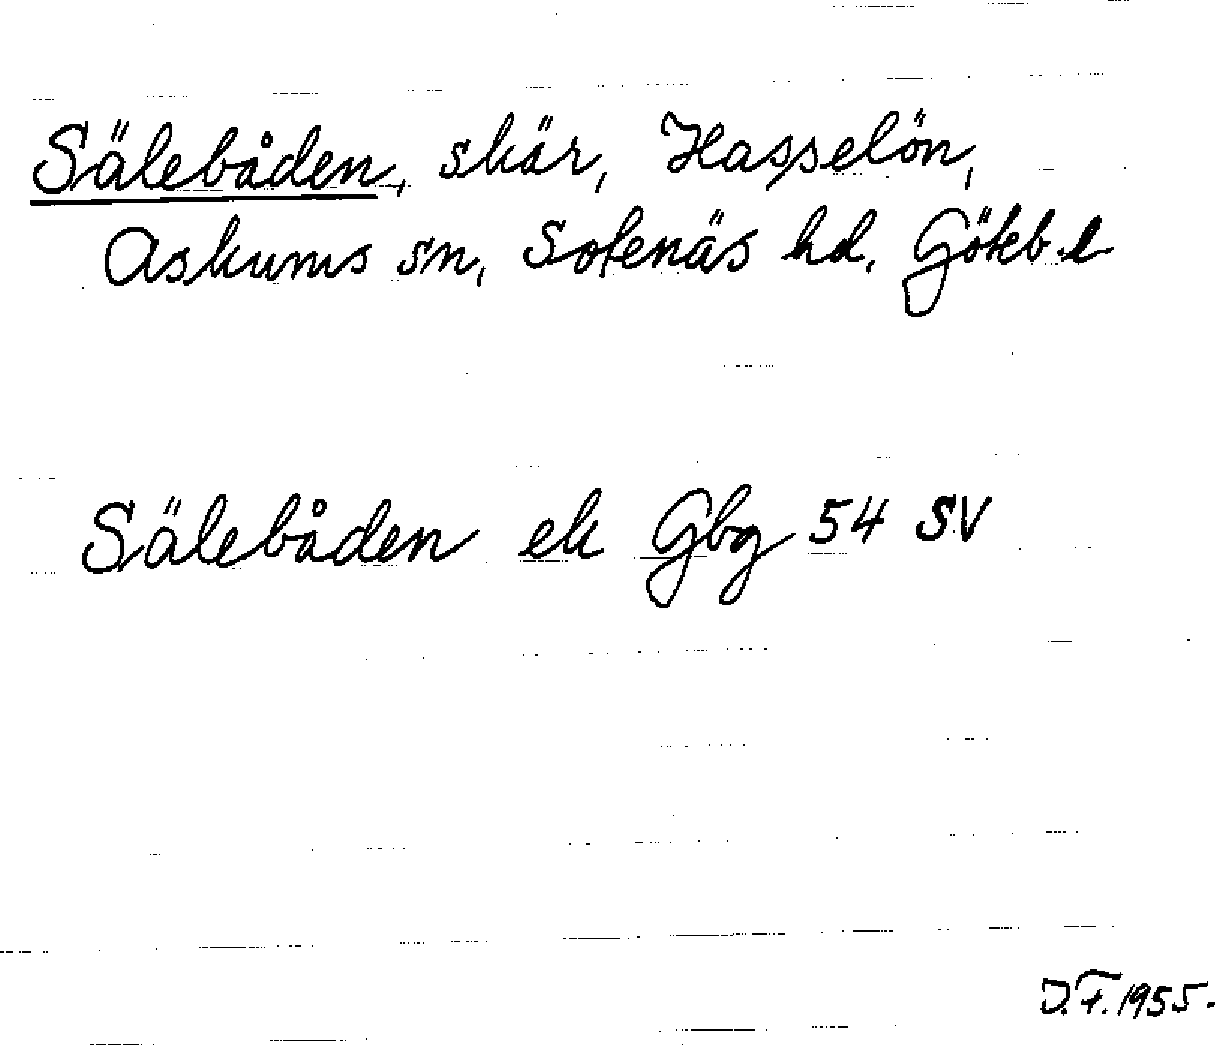 Sälebåden, skär, Hasselön,
Askums sn, Sotenäs hd. Göteb. l
Sälebåden ek Gbg 54 SV
D.F. 1955.